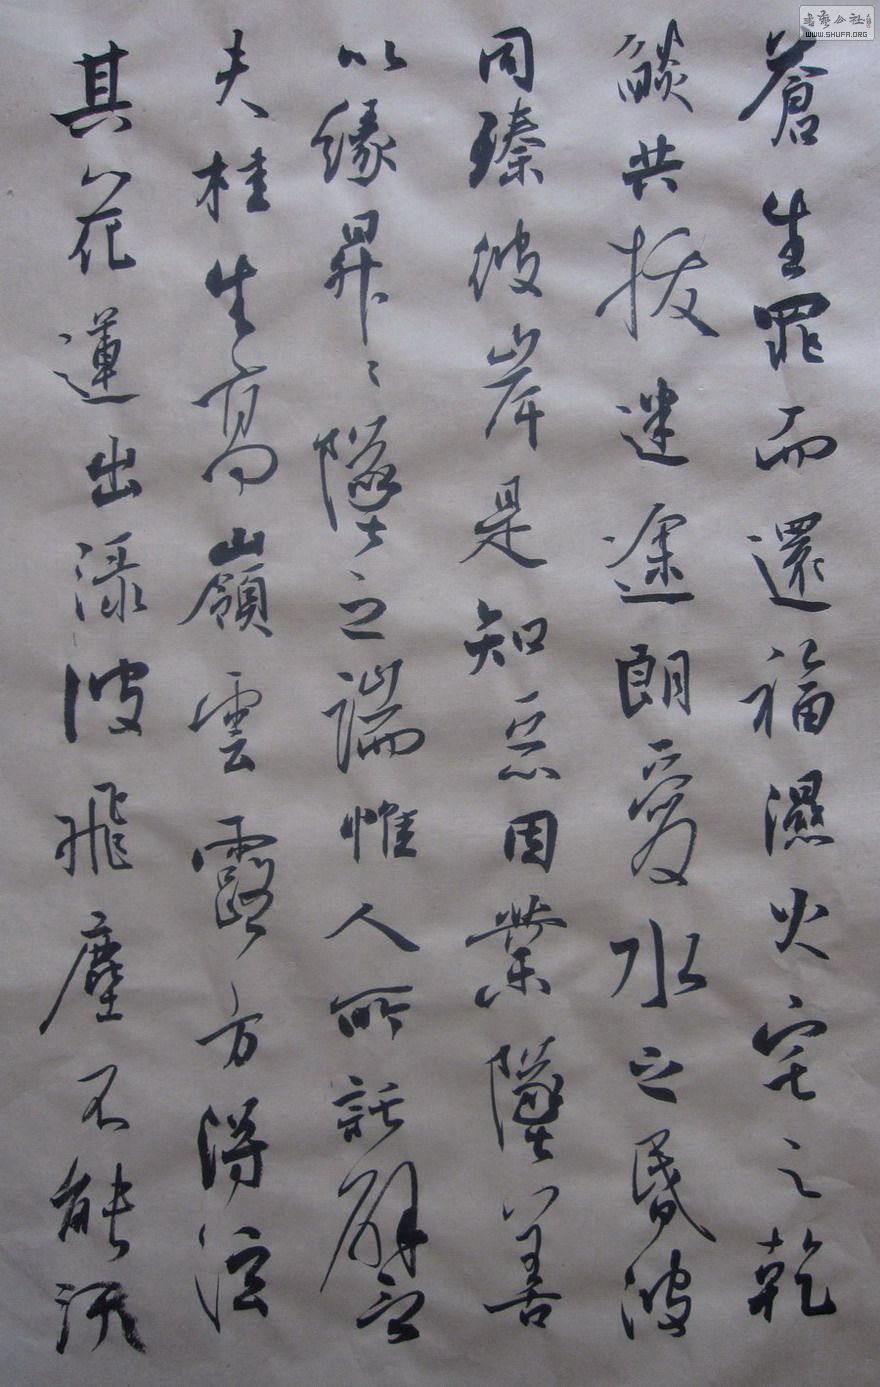 蒼生罪而還福濕火宅之乾
燄共拔迷途朗愛水之昏波
同臻彼岸是知惡因業墜善
以緣昇昇墜之端惟人所託譬
夫桂生高嶺雲露方得泫
其花蓮出淥波飛塵不能汙
書藝公社
WWW.SHUFA.ORG